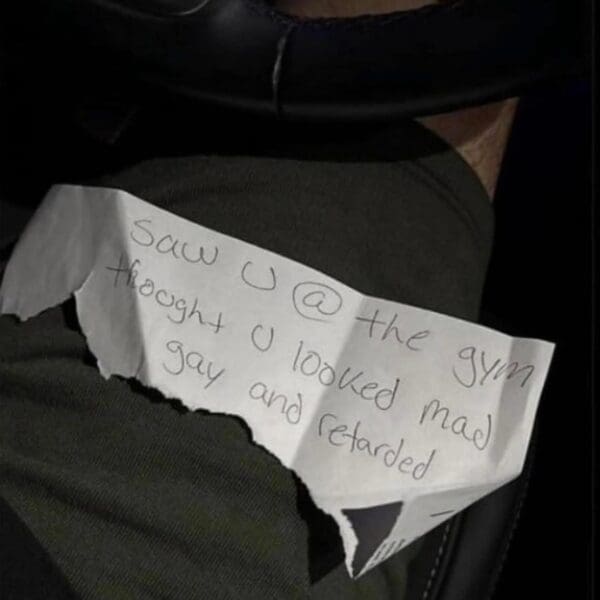 saw U @ the gym
thought U looked mad
gay and retarded